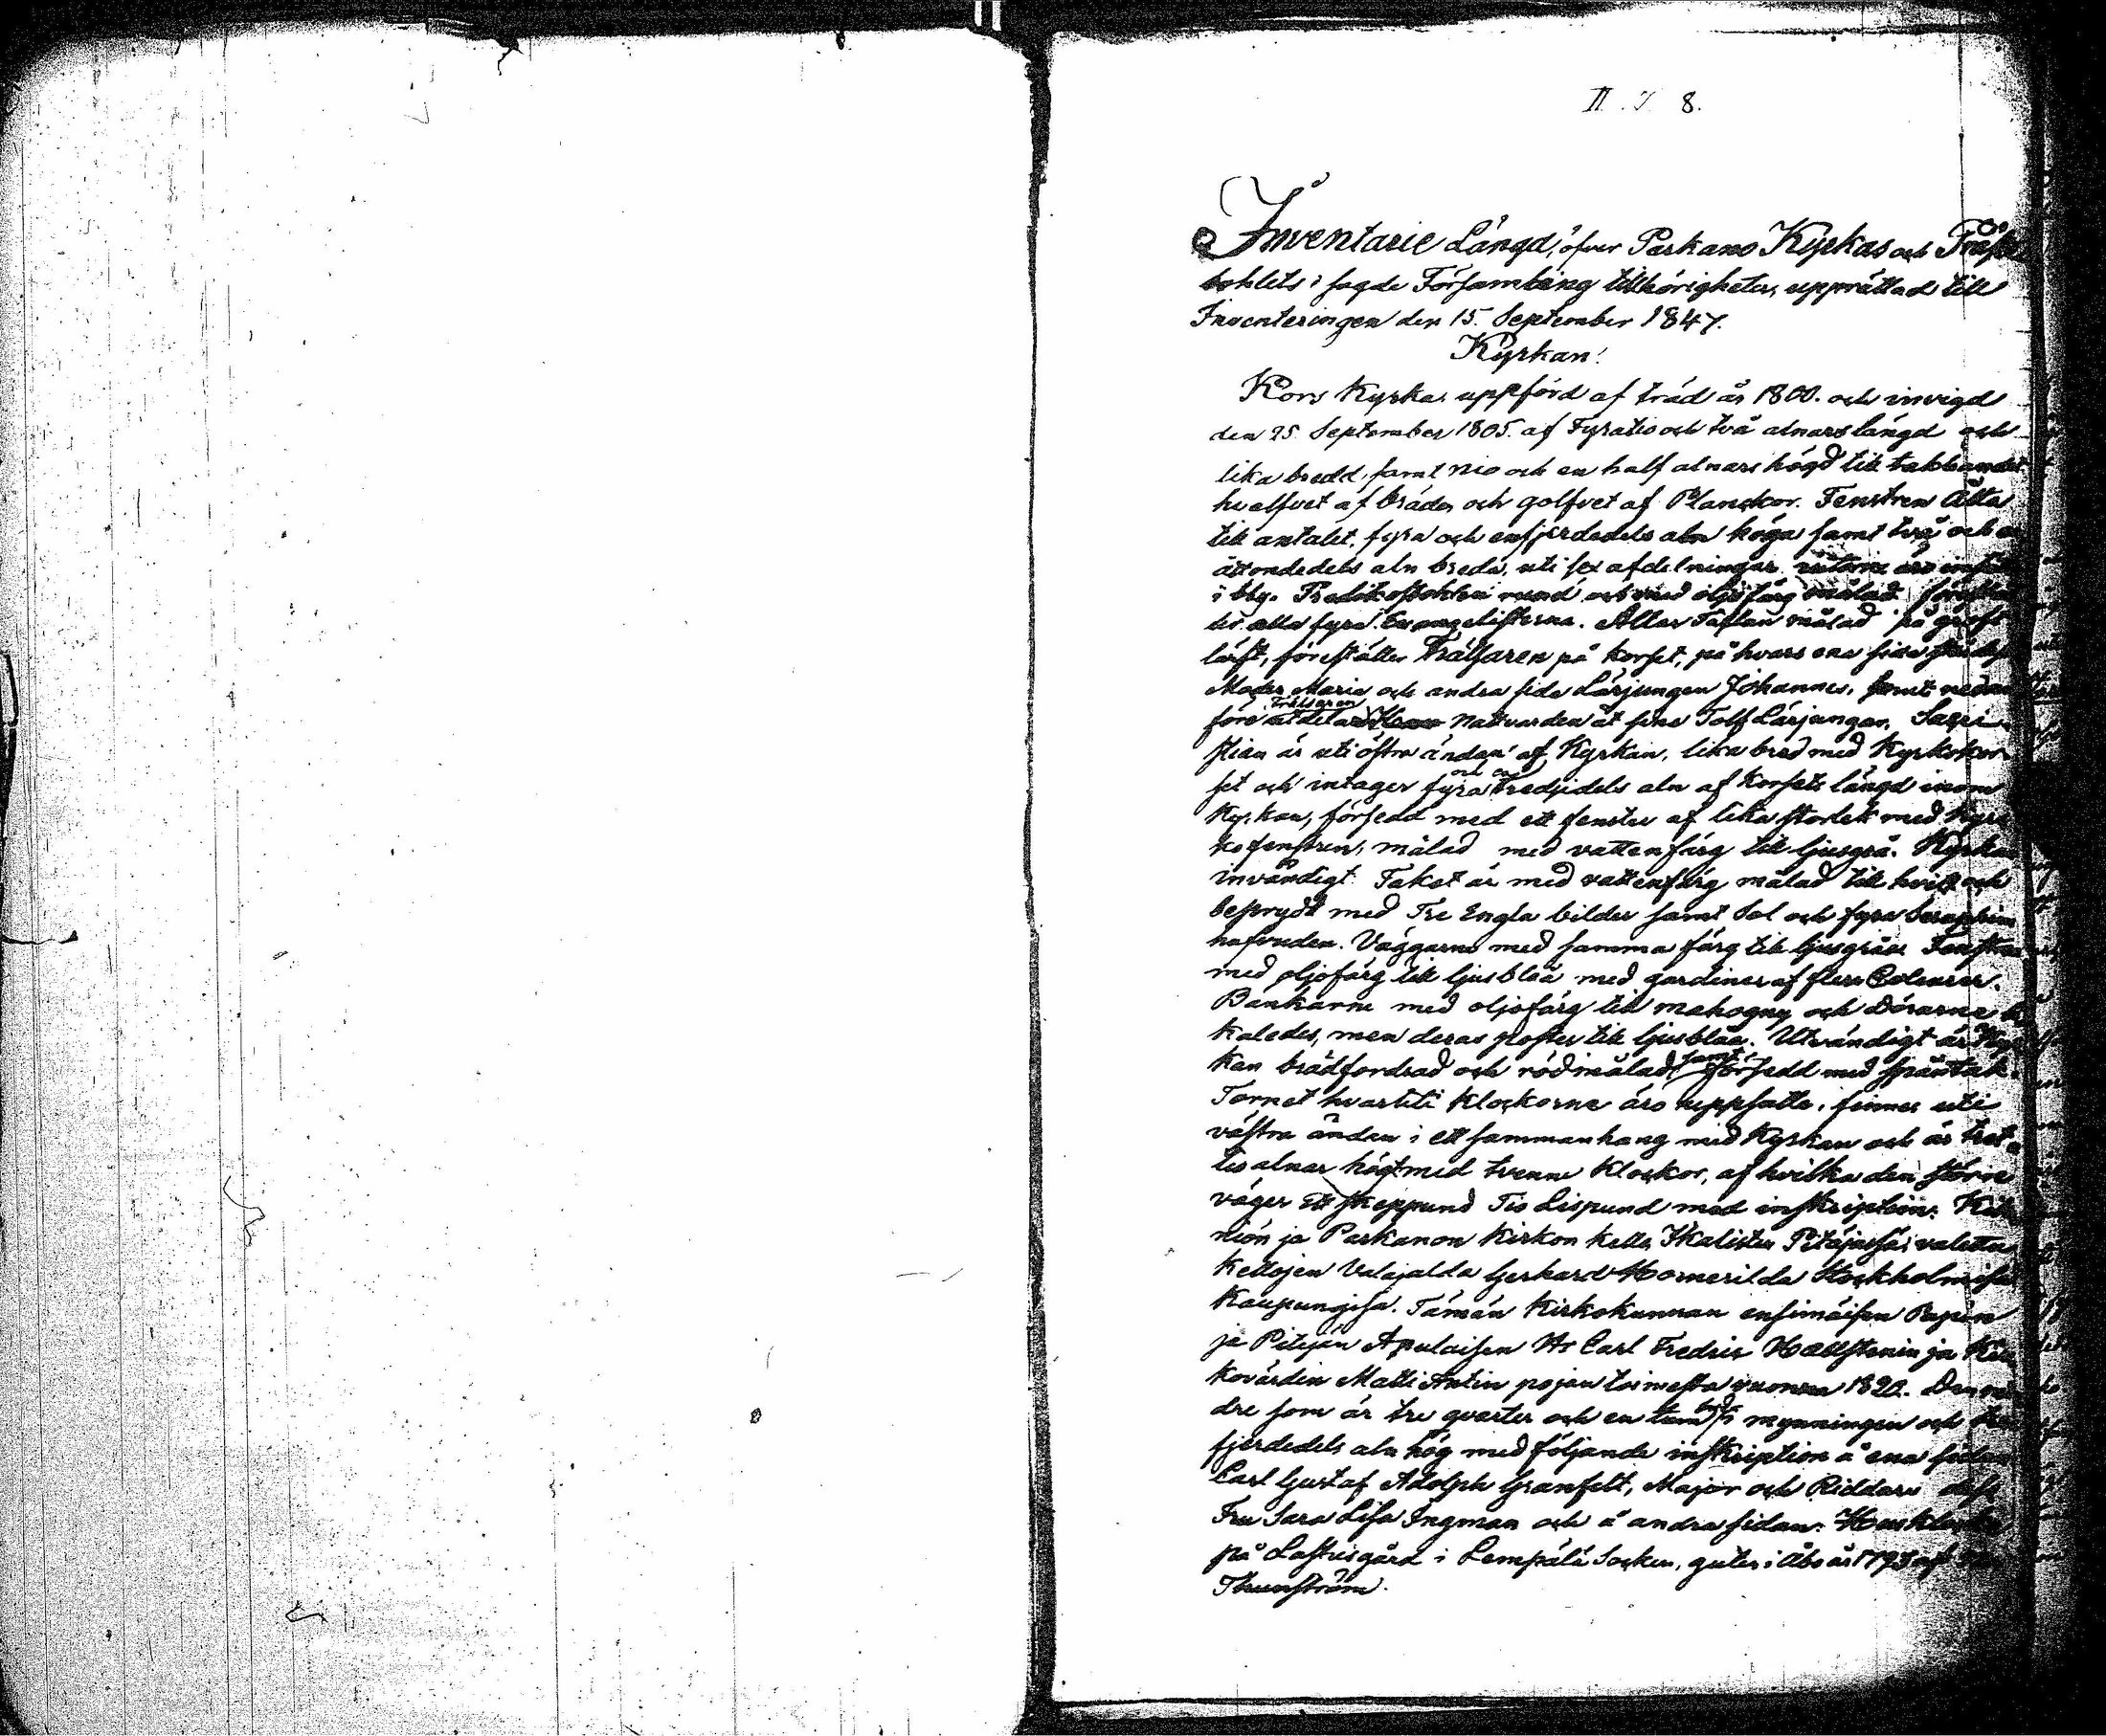 II. J 8.
Inventarie Längd, öfver Parkano Kyrkas och Präste
bohlets i sagde Församling tillhörigheter, upprättad till
Inventeringen den 15. September 1847.
Kyrkan.
Kors Kyrka, uppförd af träd år 1800. och invigd
den 25 September 1805. af Fyratio och två alnars längd och
lika bredd, samt nio och en half alnars högd till takbandet
hvalfvet af bräder och golfvet af Planckor. Fenstren Åtta
till antalet, fyra och en fjerdedels aln höga samt två och en
åttondedels aln breda, uti sex afdelningar
i bly. Predikostohlen rund och med oljefärg målad
de fyra Evangelisterna. Altar Taflan målad på groft
lärft, föreställer Frälsaren på korset, på hvars ena sida
Moder Maria och andra sida Lärjungen Johannes, samt nedan
före utdelar Frälsaren Nattvarden åt sine Tolf Lärjungar. Sacri-
stian är uti östra ändan af Kyrkan, lika bred med Kyrkokor-
set och intager fyra och en tredjedels aln af korsets längd inom
Kyrkan, försedd med ett fenster af lika storlek med Kyr
kofenstren, målad med vattenfärg till ljusgrå. Kyrkan
invändigt: Taket är med vattenfärg målad till hvitt och
beprydt med Tre Engla bilder samt Sol och fyra Seraphim
hufvuden. Väggarne med samma färg till ljusgrått
med oljofärg till ljusblåa med gardiner af flere Coleurer.
Bänkarne med oljofärg till mahogny och Dörarne
kaledes, men deras poster till ljusblåa. Utvändigt är Kyr
kan brädfordrad och rödmålad samt försedd med spåntak.
Tornet hvaruti Klockorne äro uppsatte, finnes uti
västra ändan i ett sammanhang med Kyrkan och är tret-
tio alnar högt med tvenne Klockor, af hvilka den större
väger Ett Skeppund Tio Lispund med inskription:
niön ja Parkanon Kirkon kello Ikalisten Pitäjäsä, valettu
Kellojen Valajalda Gerhard Hornerilda Stockholmisa
Kaupungisa. Tämän Kirkokunnan ensimäisen Papin
ja Pitäjän Apulaisen Hr Carl Fredric Hællstenin ja Kir
kovärdin Matti Antin pojan toimesta vuonna 1820. Den min
dre som är tre qvarter och en tum bred i mynningen och
fjerdedels aln hög med följande inskription å ena sidan
Carl Gustaf Adolph Granfelt, Major och Riddare dess
Fru Sara Lisa Ingman och å andra sidan: Hus Klocka
på Lastusgård i Lempälä Socken, guten i Åbo år 1793 af
Thunström.